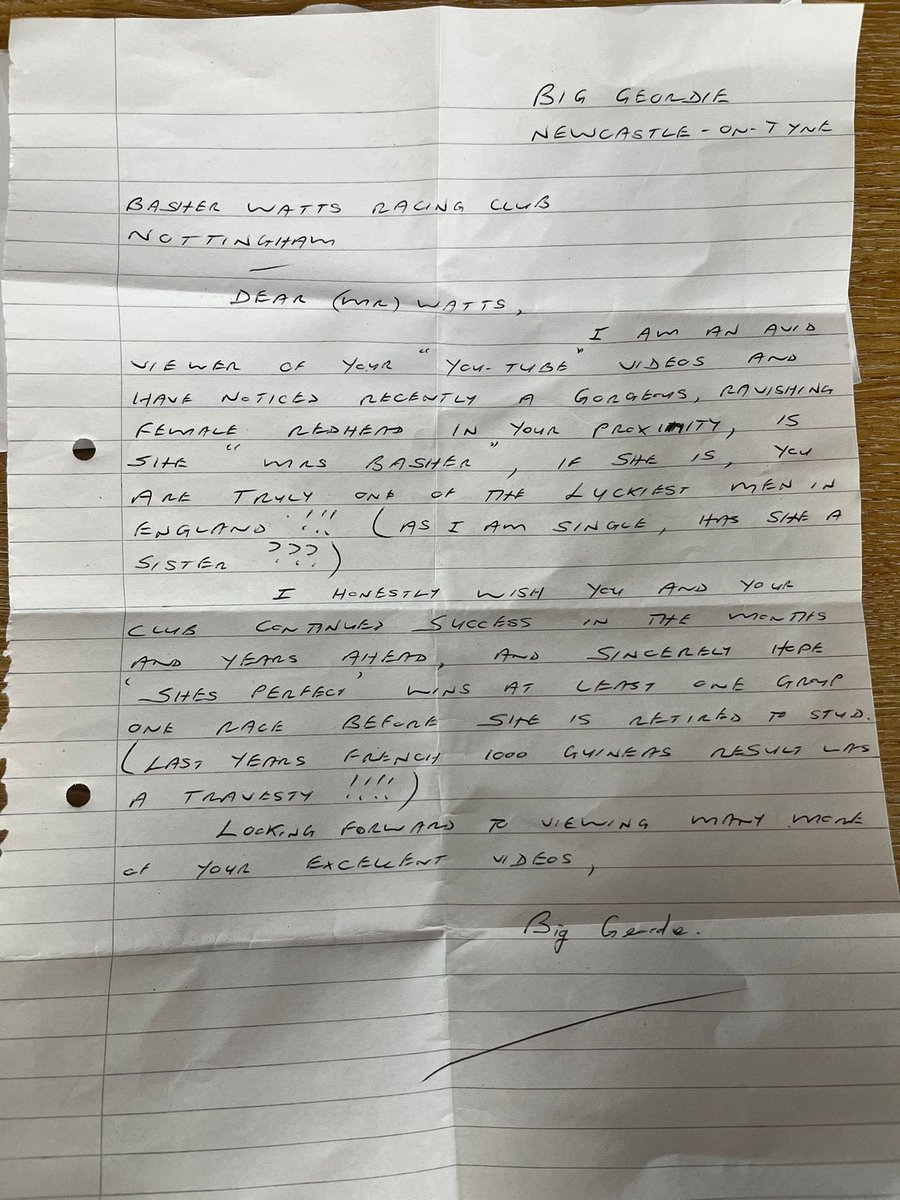 BIG GEORDIE
NEWCASTLE-ON-TYNE
BASHER WATTS RACING CLUB
NOTTINGHAM
DEAR (MR) WATTS,
I AM AN AVID
VIEWER OF YOUR "YOU-TUBE" VIDEOS AND
HAVE NOTICED RECENTLY A GORGEOUS, RAVISHING
FEMALE REDHEAD IN YOUR PROXIMITY, IS
SHE "MRS BASHER", IF SHE IS, YOU
ARE TRULY ONE OF THE LUCKIEST MEN IN
ENGLAND !!! (AS I AM SINGLE, HAS SHE A
SISTER ???)
I HONESTLY WISH YOU AND YOUR
CLUB CONTINUED SUCCESS IN THE MONTHS
AND YEARS AHEAD, AND SINCERELY HOPE
'SHES PERFECT' WINS AT LEAST ONE GROUP
ONE RACE BEFORE SHE IS RETIRED TO STUD.
(LAST YEARS FRENCH 1000 GUINEAS RESULT WAS
A TRAVESTY !!!!)
LOOKING FORWARD TO VIEWING MANY MORE
OF YOUR EXCELLENT VIDEOS,
Big Geordie.